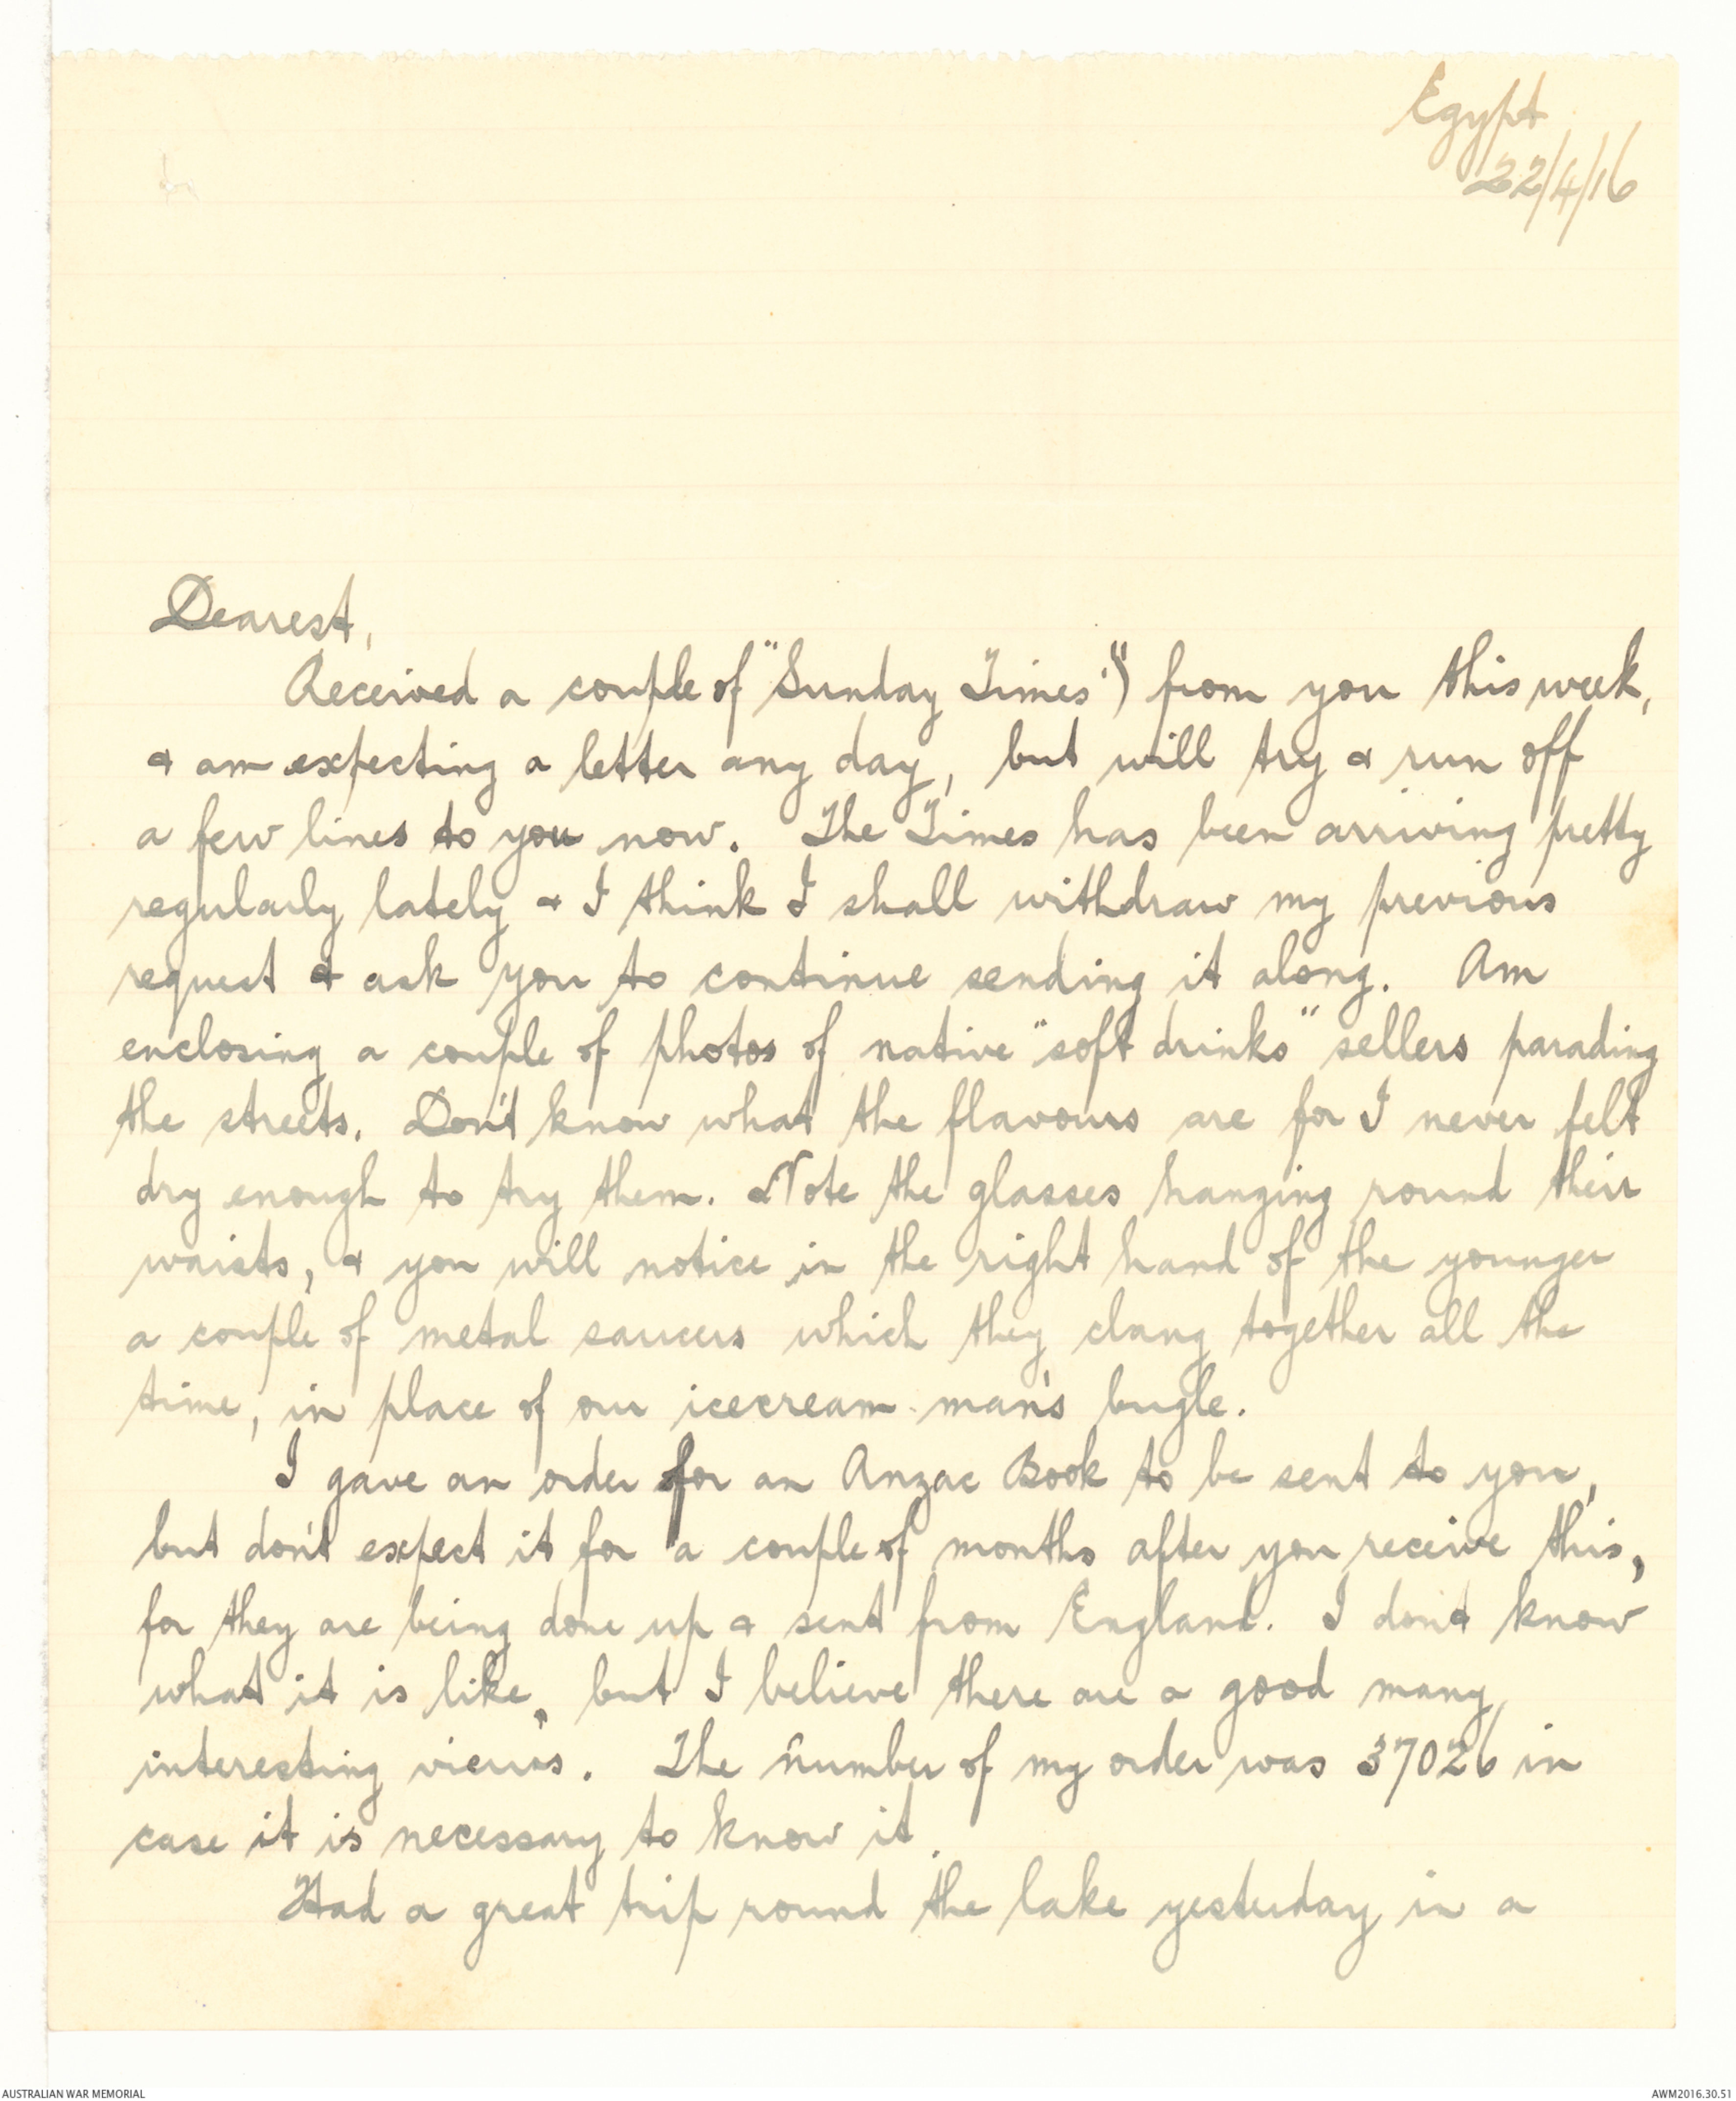 Egypt
22/4/16
Dearest,
Received a couple of "Sunday Times") from you this week,
& am expecting a letter any day, but will try & run off
a few lines to you now. The Times has been arriving pretty
regularly lately & I think I shall withdraw my previous
request & ask you to continue sending it along. Am
enclosing a couple of photos of native "soft drinks" sellers parading
the streets. Don't know what the flavours are for I never felt
dry enough to try them. Note the glasses hanging round their
waists, & you will notice in the right hand of the younger
a couple of metal saucers which they clang together all the
time, in place of our icecream man's bugle.
I gave an order for an Anzac Book to be sent to you,
but don't expect it for a couple of months after you receive this,
for they are being done up & sent from England. I don't know
what it is like, but I believe there are a good many
interesting views. The number of my order was 37026 in
case it is necessary to know it.
Had a great trip round the lake yesterday in a
AUSTRALIAN WAR MEMORIAL
AWM2016.30.51